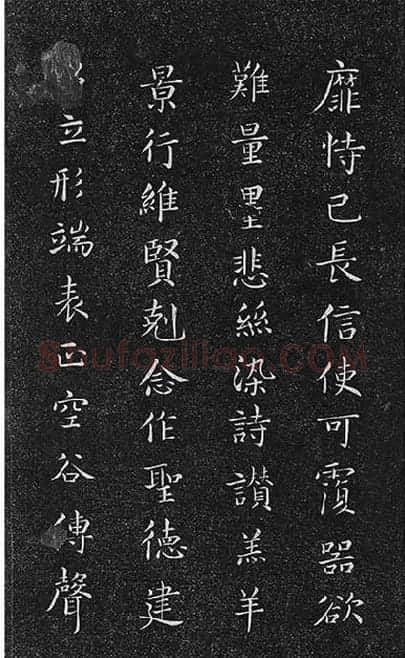 靡恃己長信使可覆器欲
難量墨悲絲染詩讚羔羊
景行維賢剋念作聖德建
立形端表正空谷傳聲
Shufazilian.COM